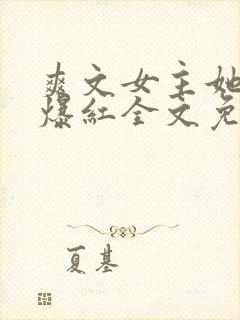 爽文女主她
爆红全文免
夏基